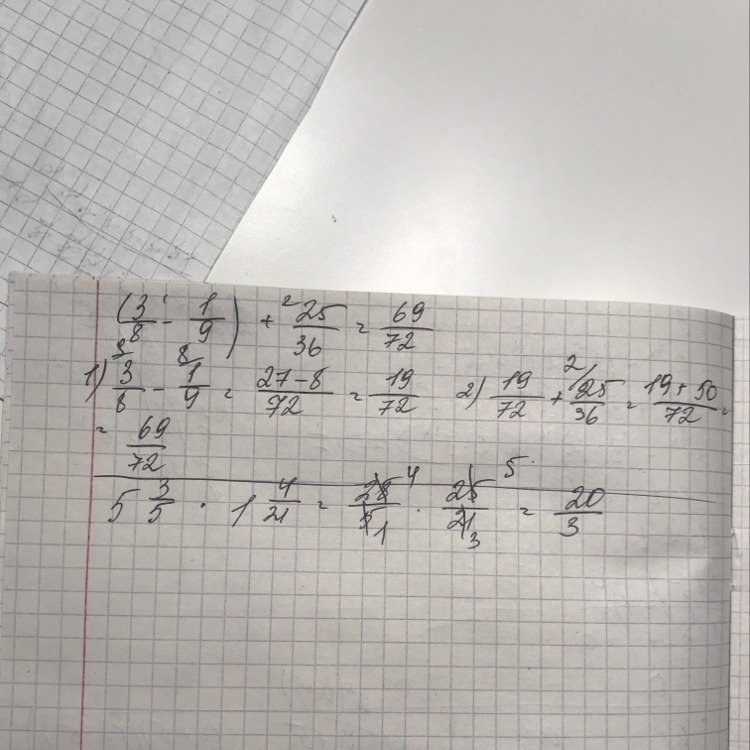 (3/8 - 1/9) + ²25/36 = 69/72
1) 3/8 - ⁸1/9 = 27-8/72 = 19/72 2) 19/72 + ²⁾25/36 = 19+50/72 =
= 69/72
5 3/5 · 1 4/21 = 28/5 · 25/21 = 20/3
4 1 5 3